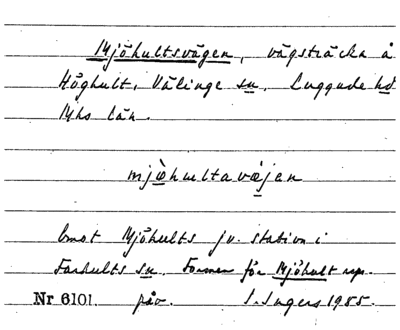 Mjöhultsvägen, vägsträcka å
Höghult, Välinge sn, Luggude hd
Mhs län.
mjöhultavæjen
Emot Mjöhults jv. station i
Farhults sn. Formen för Mjöhult upp-
Nr 6101. påv. I. Ingers 1985.